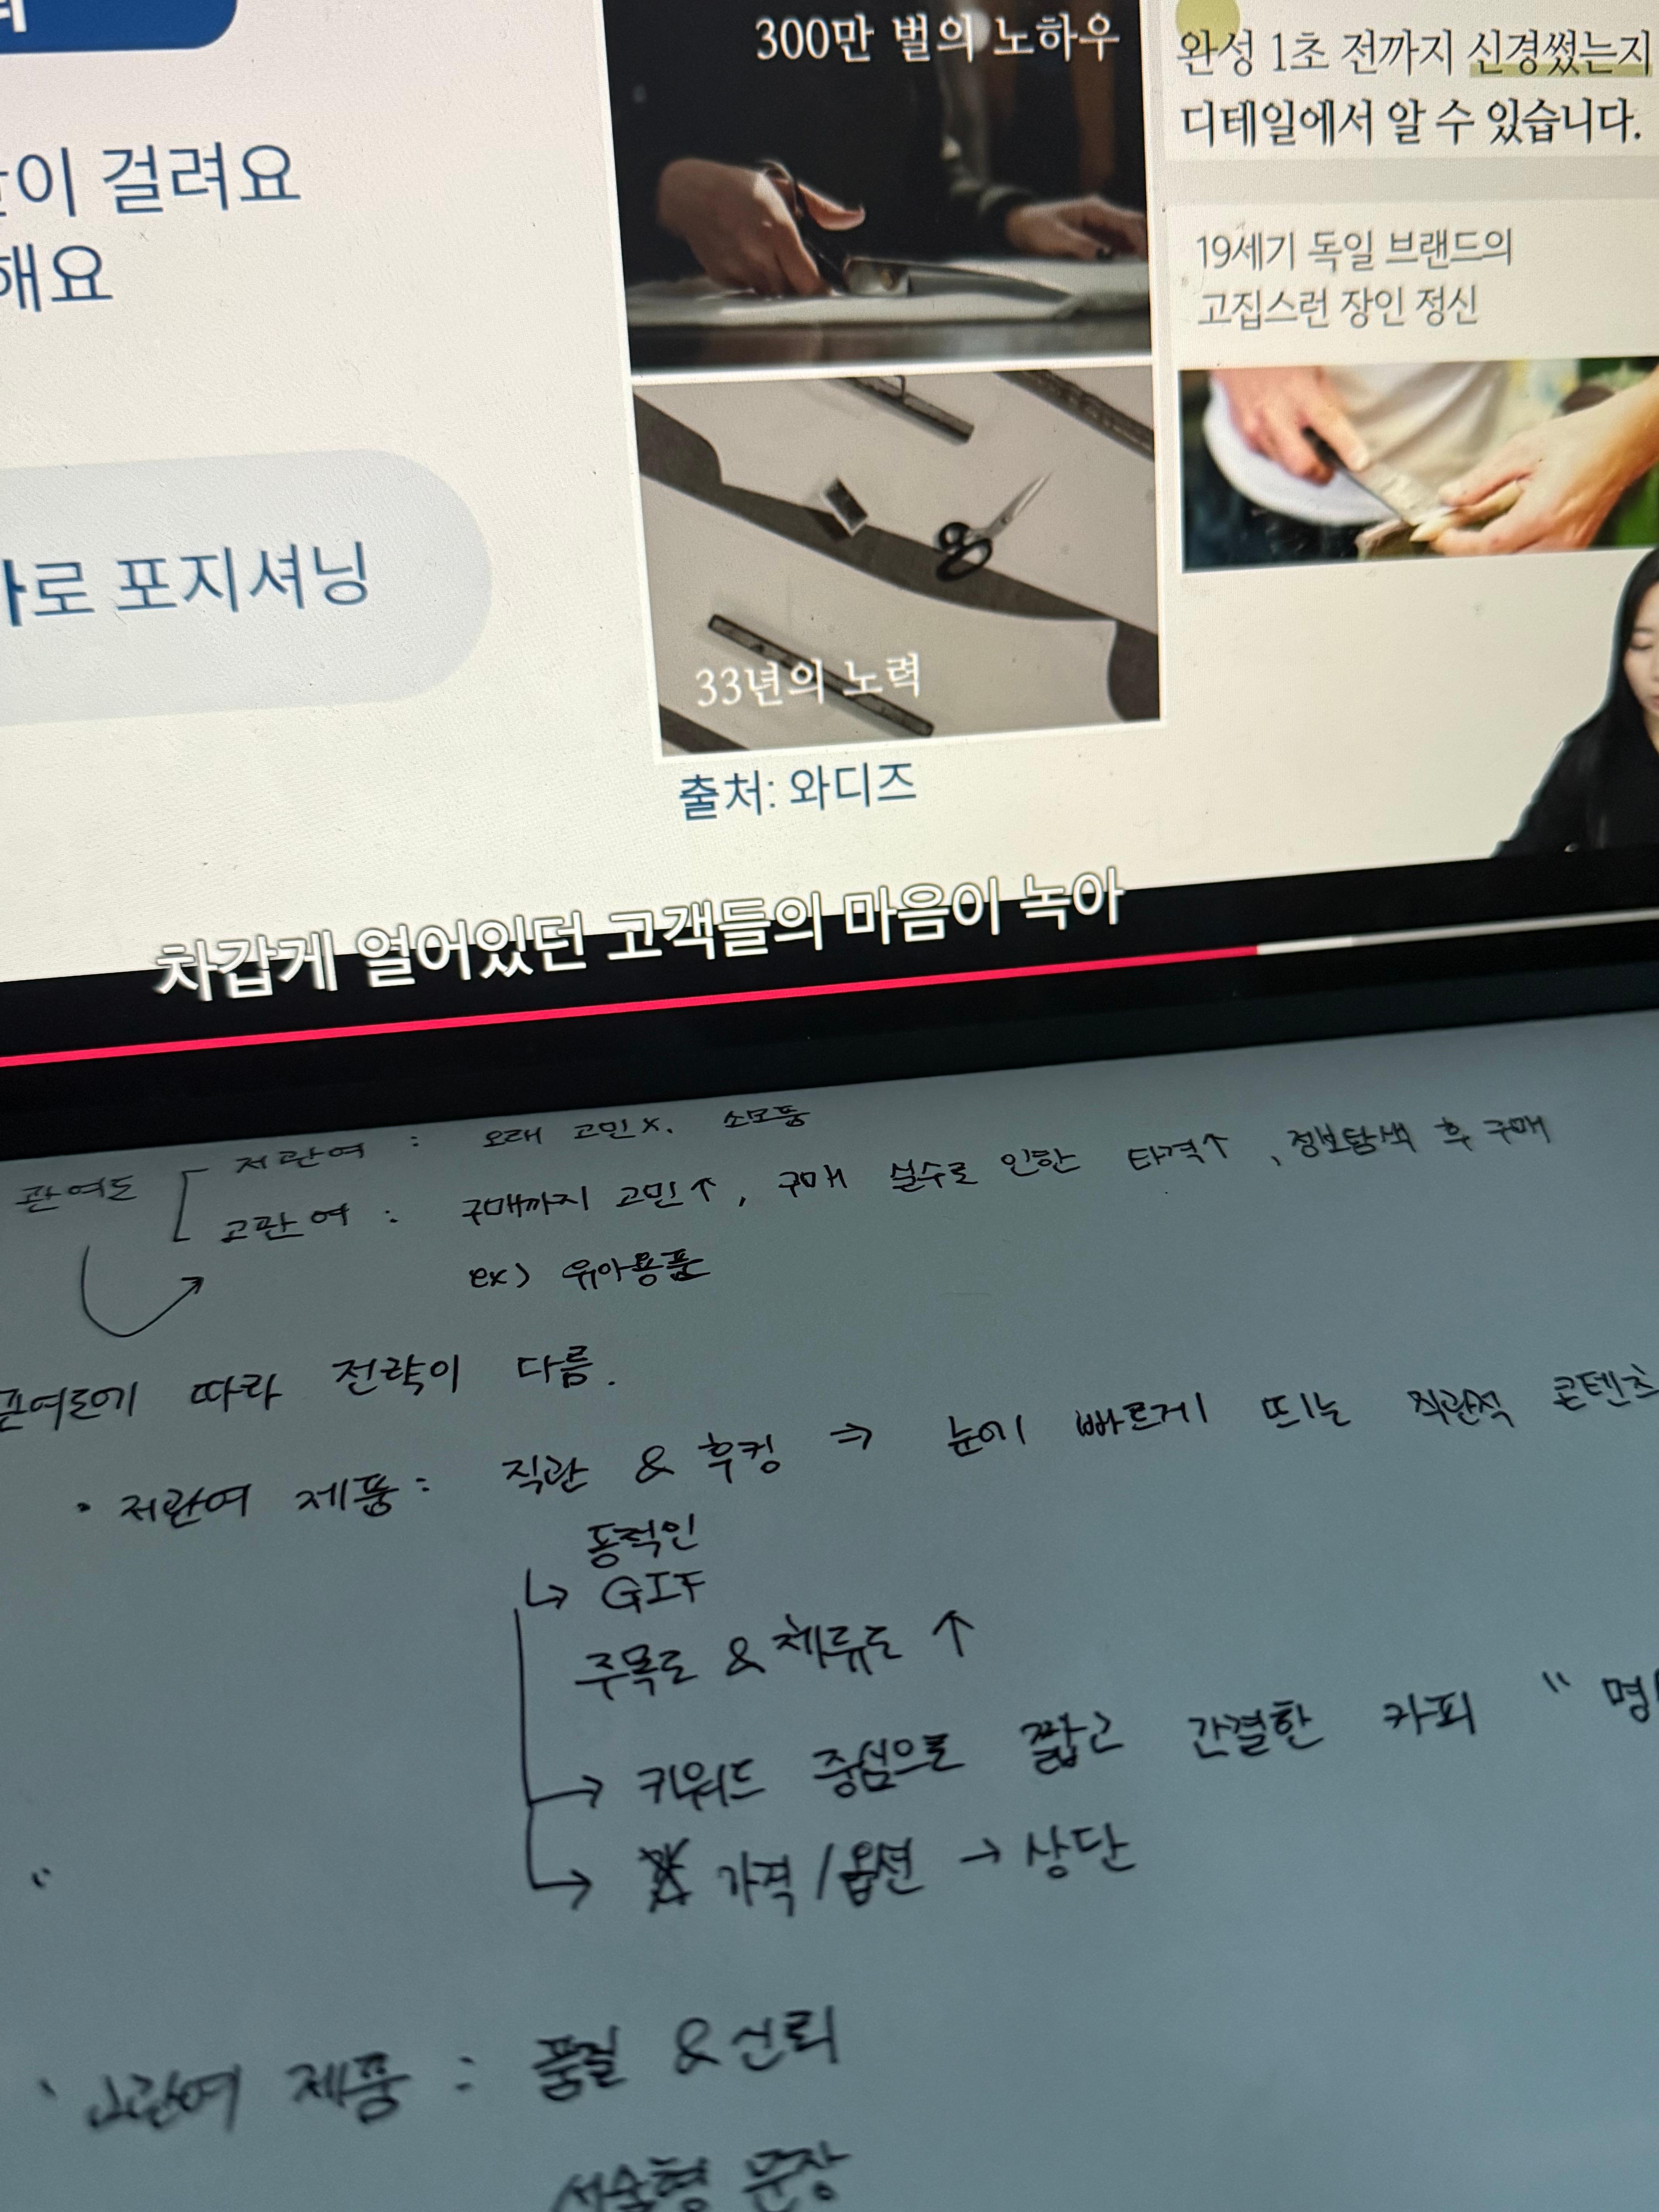 300만 벌의 노하우
완성 1초 전까지 신경썼는지
디테일에서 알 수 있습니다.
걸려요
해요
19세기 독일 브랜드의
고집스런 장인 정신
포지셔닝
33년의 노력
출처: 와디즈
차갑게 얼어있던 고객들의 마음이 녹아
관여도
저관여 : 오래 고민 x. 소모품
고관여 : 구매까지 고민↑, 구매 실수로 인한 타격↑, 정보탐색 후 구매
ex) 유아용품
관여도에 따라 전략이 다름.
• 저관여 제품 : 직관 & 후킹 ⇒ 눈에 빠르게 띄는 직관적 콘텐츠
동적인
↳ GIF
주목도 & 체류도 ↑
→ 키워드 중심으로 짧고 간결한 카피 "
"
→ 가격/옵션 → 상단
• 고관여 제품 : 품질 & 신뢰
서술형 문장